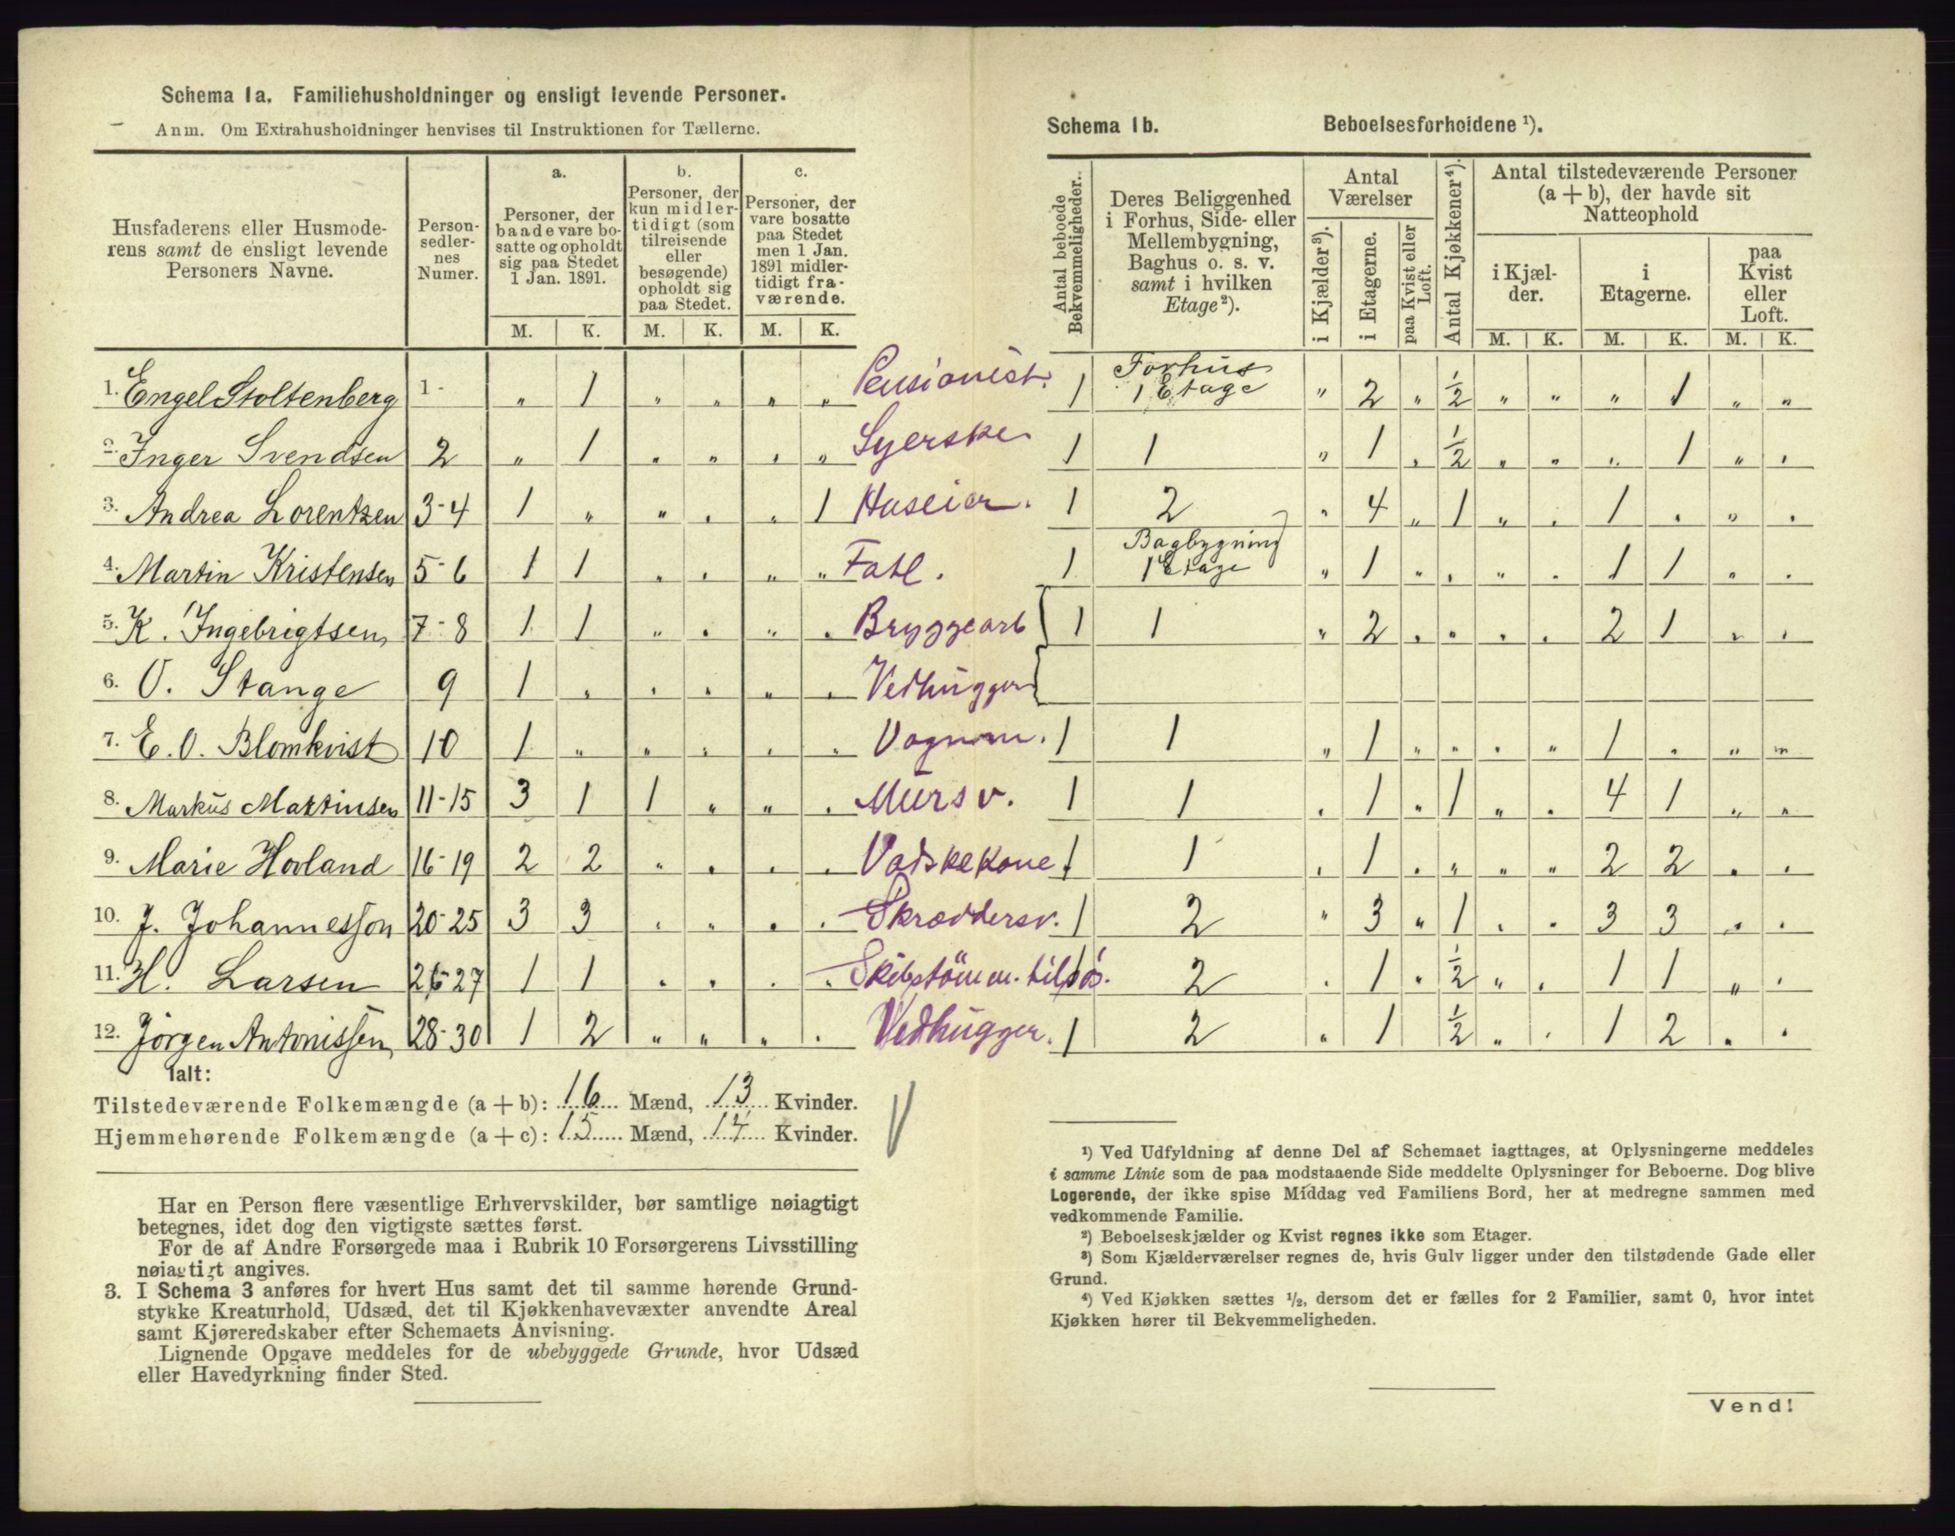 Schema 1a. Familiehusholdninger og ensligt levende Personer.
Anm. Om Extrahusholdninger henvises til Instruktionen for Tællerne.
Husfaderens eller Husmoderens samt de ensligt levende Personers Navne.
Personsedlernes Numer.
a. Personer, der baade vare bosatte og opholdt sig paa Stedet 1 Jan. 1891.
b. Personer, der kun midlertidigt (som tilreisende eller besøgende) opholdt sig paa Stedet.
c. Personer, der vare bosatte paa Stedet men 1 Jan. 1891 midlertidigt fraværende.
M. K. M. K. M. K.
1. Engel Stoltenberg 1 - „ 1 „ „ „ „ Pensionist.
2. Inger Svendsen 2 „ 1 „ „ . „ Syerske
3. Andrea Lorentzen 3-4 1 „ „ . „ 1 Huseier.
4. Martin Kristensen 5-6 1 1 „ . „ „ Fatl.
5. K. Ingebrigtsen 7-8 1 1 „ . „ . Bryggearb
6. O. Stange 9 1 „ . . „ . Vedhugger
7. E. O. Blomkvist 10 1 „ „ . . „ Vognm.
8. Markus Martinsen 11-15 3 1 1 „ „ . Mursv.
9. Marie Hovland 16-19 2 2 „ . . . Vaskekone
10. J. Johannesson 20-25 3 3 . „ . . Skræddersv.
11. H. Larsen 26-27 1 1 . . . . Skibstömm. tilsös.
12. Jörgen Antonissen 28-30 1 2 „ „ „ . Vedhugger.
Ialt:
Tilstedeværende Folkemængde (a + b): 16 Mænd, 13 Kvinder.
Hjemmehørende Folkemængde (a + c): 15 Mænd, 14 Kvinder.
Har en Person flere væsentlige Erhvervskilder, bør samtlige nøiagtigt
betegnes, idet dog den vigtigste sættes først.
For de af Andre Forsørgede maa i Rubrik 10 Forsørgerens Livsstilling
nøiagtigt angives.
3. I Schema 3 anføres for hvert Hus samt det til samme hørende Grund-
stykke Kreaturhold, Udsæd, det til Kjøkkenhavevæxter anvendte Areal
samt Kjøreredskaber efter Schemaets Anvisning.
Lignende Opgave meddeles for de ubebyggede Grunde, hvor Udsæd
eller Havedyrkning finder Sted.
Schema 1b. Beboelsesforholdene ¹).
Antal beboede Bekvemmeligheder.
Deres Beliggenhed i Forhus, Side- eller Mellembygning, Baghus o. s. v. samt i hvilken Etage²).
Antal Værelser
i Kjælder³).
i Etagerne.
paa Kvist eller Loft.
Antal Kjøkkener⁴).
Antal tilstedeværende Personer (a + b), der havde sit Natteophold
i Kjælder.
i Etagerne.
paa Kvist eller Loft.
M. K. M. K. M. K.
1 Forhus 1 Etage „ 2 „ ½ „ „ „ 1 „ „
1 1 „ 1 . ½ „ „ „ 1 „ .
1 2 „ 4 „ 1 „ . 1 . „ .
1 Bagbygning 1 Etage „ 1 „ . „ . 1 1 „ .
1 1 „ 2 . „ . . 2 1 „ .
1 1 „ 1 „ „ . „ 1 . „ „
1 1 . 1 „ 1 „ . 4 1 „ „
1 1 . 1 . „ „ „ 2 2 . .
1 2 „ 3 „ 1 . . 3 3 . .
1 2 . 1 . ½ „ . 1 1 „ .
1 2 „ 1 ½ „ . 1 2 . .
¹) Ved Udfyldning af denne Del af Schemaet iagttages, at Oplysningerne meddeles
i samme Linie som de paa modstaaende Side meddelte Oplysninger for Beboerne. Dog blive
Logerende, der ikke spise Middag ved Familiens Bord, her at medregne sammen med
vedkommende Familie.
²) Beboelseskjælder og Kvist regnes ikke som Etager.
³) Som Kjælderværelser regnes de, hvis Gulv ligger under den tilstødende Gade eller
Grund.
⁴) Ved Kjøkken sættes ½, dersom det er fælles for 2 Familier, samt 0, hvor intet
Kjøkken hører til Bekvemmeligheden.
Vend!